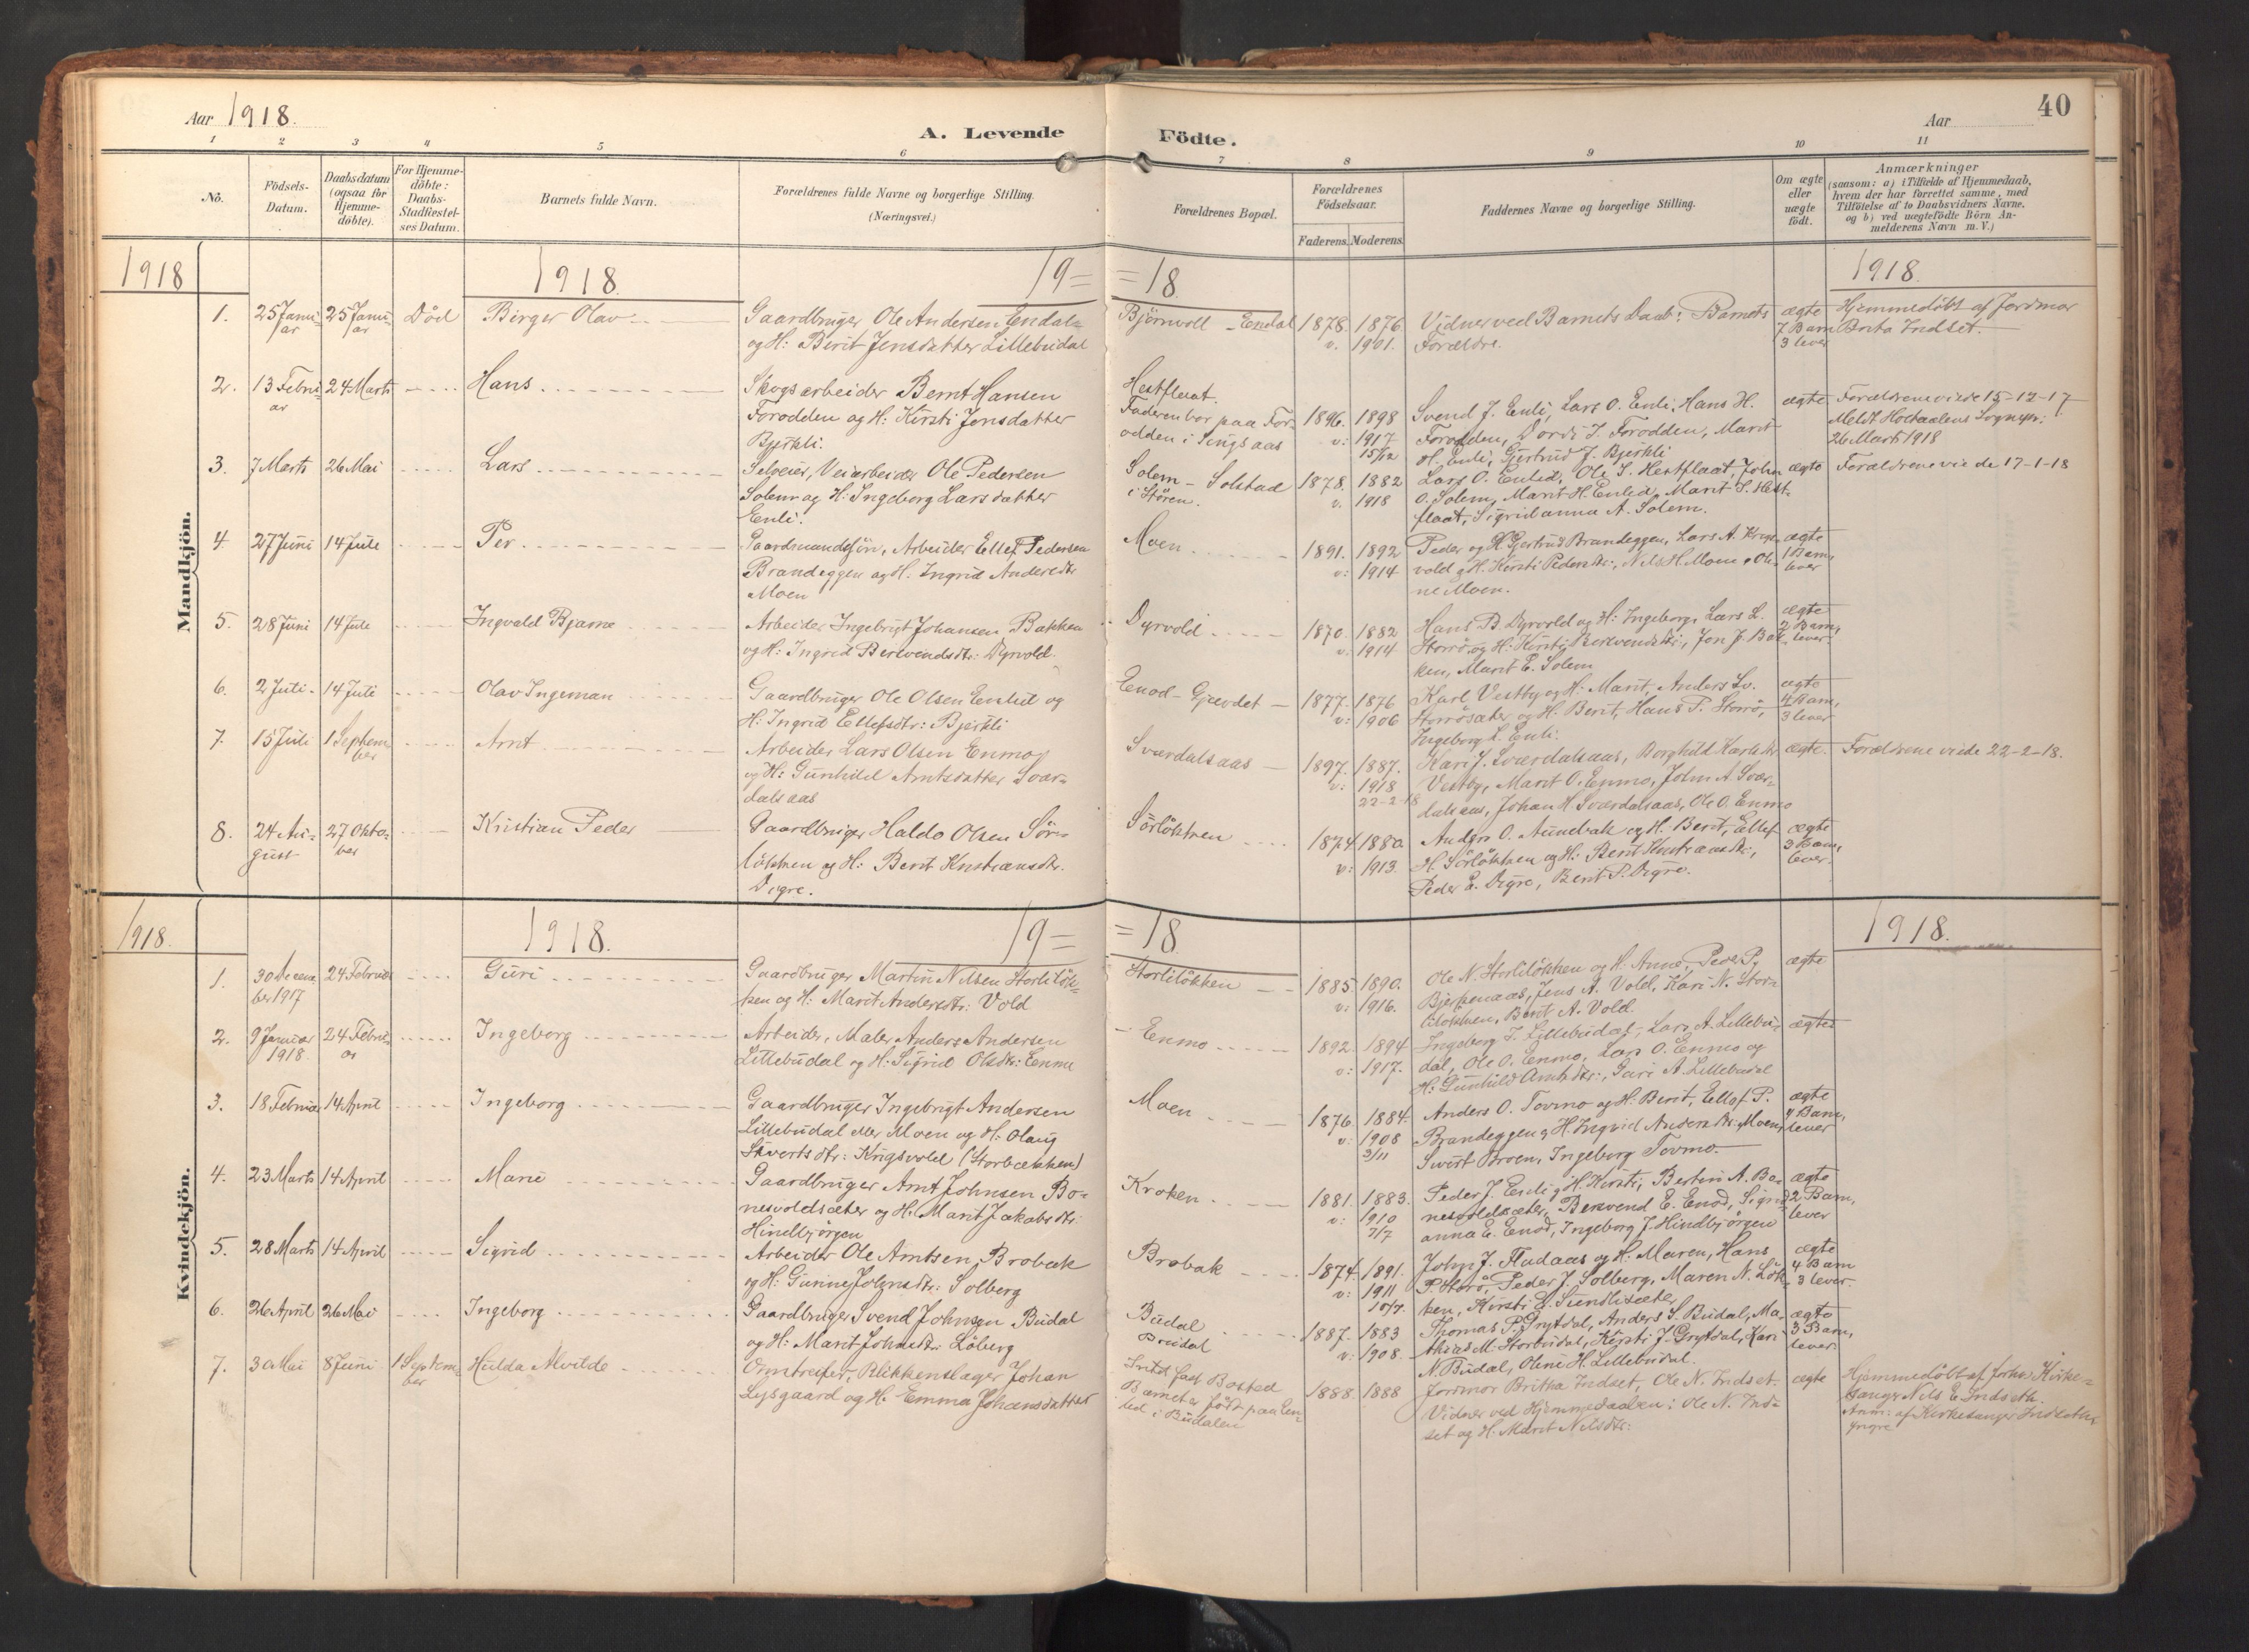 Aar 1918.
A. Levende Födte.
Aar
40
1 2 3 4 5 6 7 8 9 10 11
No.
Födsels-Datum.
Daabsdatum (ogsaa for Hjemme-döbte).
For Hjemme-döbte: Daabs-Stadfæstel-ses Datum.
Barnets fulde Navn.
Forældrenes fulde Navne og borgerlige Stilling.
(Næringsvei.)
Forældrenes Bopæl.
Forældrenes Födselsaar.
Faderens. Moderens.
Faddernes Navne og borgerlige Stilling.
Om ægte eller uægte födt.
Anmærkninger
(saasom: a) i Tilfælde af Hjemmedaab,
hvem der har forrettet samme, med
Tilföielse af to Daabsvidners Navne,
og b) ved uægtefödte Börn An-
melderens Navn m. V.)
1918 1918. 19= =18. 1918.
Mandkjön.
1. 25 Janu-ar 25 Janu-ar Död Birger Olav
Gaardbruger Ole Andersen Endal
og H: Berit Jensdatter Lillebudal
Björnvoll - Endal
1878. 1876.
v. 1901.
Vidner ved Barnets Daab: Barnets
Forældre.
ægte
7 Barn
3 lever
Hjemmedöbt af Jordmor
Indset.
2. 13 Febru-ar 24 Marts Hans
Skogsarbeider Bernt Hansen
Forodden og H: Kirsti Jonsdatter
Bjerkli.
Hestflaat.
Faderen bor paa For-
odden i Singsaas
1896. 1898
v: 1917
15/12
Svend J. Enli, Lars O. Enli, Hans H.
Forodden, Dordi J. Forodden, Marit
H. Enli, Gjertrud J. Bjerkli
ægte
Forældrene viede 15-12-17
Meldt Sognepr:
26 Marts 1918
3. 7 Marts 26 Mai Lars
Selveier, Veiarbeider Ole Pedersen
Solem og H: Ingeborg Larsdatter
Enli.
Solem - Solstad
i Stören.
1878. 1882
v. 1918
Lars O. Enlid, Ole S. Hestflaat, John
O. Solem, Marit H. Enlid, Marit S. Hest-
flaat, Sigridanna A. Solem.
ægte
Forældrene viede 17-1-18
4 27 Juni 14 Jule Per
Gaardmandssön, Arbeider Ellef Pedersen
Brandeggen og H. Ingrid Andersdtr
Moen
Moen
1891. 1892
v: 1914
Peder og H. Gjertrud Brandeggen, Lars A. Krigs-
vold og H. Kirsti Pedersdtr:, Nils H. Moen, Oli-
ne Moen.
ægte
1 Barn,
lever
5. 28 Juni 14 Jule Ingvald Bjarne
Arbeider Ingebrigt Johansen Bakken
og H: Ingrid Bersvendsdtr: Dyrvold.
Dyrvold
1870. 1882
v. 1914
Hans B. Dyrvold og H: Ingeborg, Lars L.
Storrö og H: Kirsti Bersvendsdtr:, Jon J. Bak-
ken, Marit E. Solem
ægte
2 Barn,
lever
6. 2 Juli 14 Juli Olav Ingeman
Gaardbruger Ole Olsen Enlid og
H: Ingrid Ellefsdtr: Bjerkli
Enod - Gjævdet
1877. 1876
v: 1906
Karl Vestby og H: Marit, Anders Sv.
Storrösæter og H. Berit, Hans P. Storrö,
Ingeborg L. Enli.
ægte
4 Barn,
3 lever
7. 15 Juli 1 Septem-ber Arnt
Arbeider Lars Olsen Enmo
og H: Gunhild Arntsdatter Svær-
dalsaas
Sværdalsaas
1897. 1887.
v: 1918
22-2-18
Kari J. Sværdalsaas, Borghild Karlsdtr
Vestby, Marit O. Enmo, John A. Svær-
dalsaas, Johan H. Sværdalsaas, Ole O. Enmo
ægte.
Forældrene viede 22-2-18.
8. 24 Au-gust 27 Okto-ber Kristian Peder
Gaardbruger Haldo Olsen Sör-
lökken og H: Berit Kristiansdtr.
Digre.
Sörlökken
1874. 1880.
v: 1913.
Anders O. Aunebak og H. Berit, Ellef
H. Sörlökken og H: Berit Kristiansdtr:,
Peder E. Digre, Berit P. Digre.
ægte
3 Barn,
lever.
1918. 1918. 19= =18 1918.
Kvindekjön.
1. 30 Decem-ber 1917 24 Februar Guri
Gaardbruger Martin Nilsen Storlilök-
ken og H: Marit Andersdtr: Vold
Storlilökken
1885. 1890.
v. 1916.
Ole N. Storlilökken og H. Anne, Peder P.
Bjerkenaas, Jens A. Vold, Kari N. Stor-
lilökken, Berit A. Vold.
ægte
2. 9 Januar 1918. 24 Febru-ar Ingeborg
Arbeider, Maler Anders Andersen
Lillebudal og H: Sigrid Olsdtr: Enmo
Enmo
1892. 1894
v: 1917.
Ingeborg J. Lillebudal, Lars A. Lillebu-
dal, Ole O. Enmo, Lars O. Enmo og
H: Gunhild Arntsdtr:, Guri A. Lillebudal
ægte
3. 18 Februar 14 April Ingeborg
Gaardbruger Ingebrigt Andersen
Lillebudal eller Moen og H: Olaug
Sivertsdtr: Krigsvold (Storbækken)
Moen
1876. 1884.
v: 1908
3/11
Anders O. Tovmo og H. Berit, Ellef P.
Brandeggen og H. Ingrid Andersdtr: Moen,
Sivert Broen, Ingeborg Tovmo.
ægte
4 Barn,
lever
4. 23 Marts 14 April Marie
Gaardbruger Arnt Johnsen Bo-
nesvoldsæter og H. Marit Jakobsdtr:
Hindbjörgen
Kroken
1881. 1883.
v: 1910
7/7
Peder J. Enli og H. Kirsti, Bertin A. Bo-
nesvoldsæter, Bersvend E. Enod, Sigrid-
anna E. Enod, Ingeborg J. Hindbjörgen
ægte
2 Barn,
lever
5. 28 Marts 14 April Sigrid
Arbeider Ole Arntsen Brobak
og H: Gurine Johnsdtr: Solberg
Brobak
1874. 1891.
v: 1911
10/7.
John J. Fladaas og H: Maren, Hans
P. Storrö, Peder J. Solberg, Maren N. Lök-
ken, Kirsti E. Sundlisæter
ægte
4 Barn
3 lever.
6. 26 April 26 Mai Ingeborg
Gaardbruger Svend Johnsen Budal
og H: Marit Johnsdtr: Löberg
Budal
1887. 1883
v: 1908.
Thomas P. Grytdal, Anders S. Budal, Ma-
thias M. Storbudal, Kirsti J. Grytdal, Kari
N. Budal, Oline H. Lillebudal.
ægte
3 Barn,
lever
7. 30 Mai 8 Juni 1 Septem-ber Hulda Alvilde
Omstreifer, Blikkenslager Johan
Lysgaard og H. Emma Johansdatter
Intet fast Bosted
Barnet er födt paa En-
lid i Budalen
1888. 1888
Jordmor Britha Indset, Ole N. Indset.
Vidner ved Hjemmedaaben: Ole N. Ind-
set og H. Marit Nilsdtr:
ægte
Hjemmedöbt af Kirke-
sanger Nils E. Indseth.
Anm: af Kirkesanger Indseth
yngre